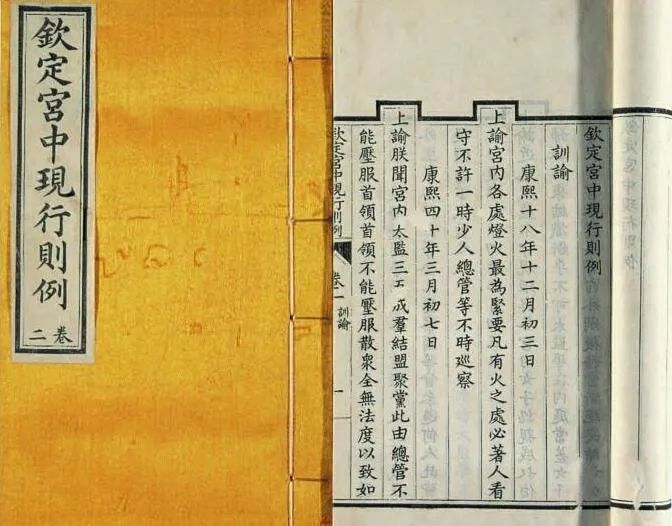 欽定宮中現行則例
卷二
欽定宮中現行則例
訓諭
康熙十八年十二月初三日
上諭宮內各處燈火最為緊要凡有火之處必著人看
守不許一時少人總管等不時巡察
康熙四十年三月初七日
上諭朕聞宮內太監三五成羣結盟聚黨此由總管不
能壓服首領首領不能壓服散衆全無法度以致如
欽定宮中現行則例
訓諭
一